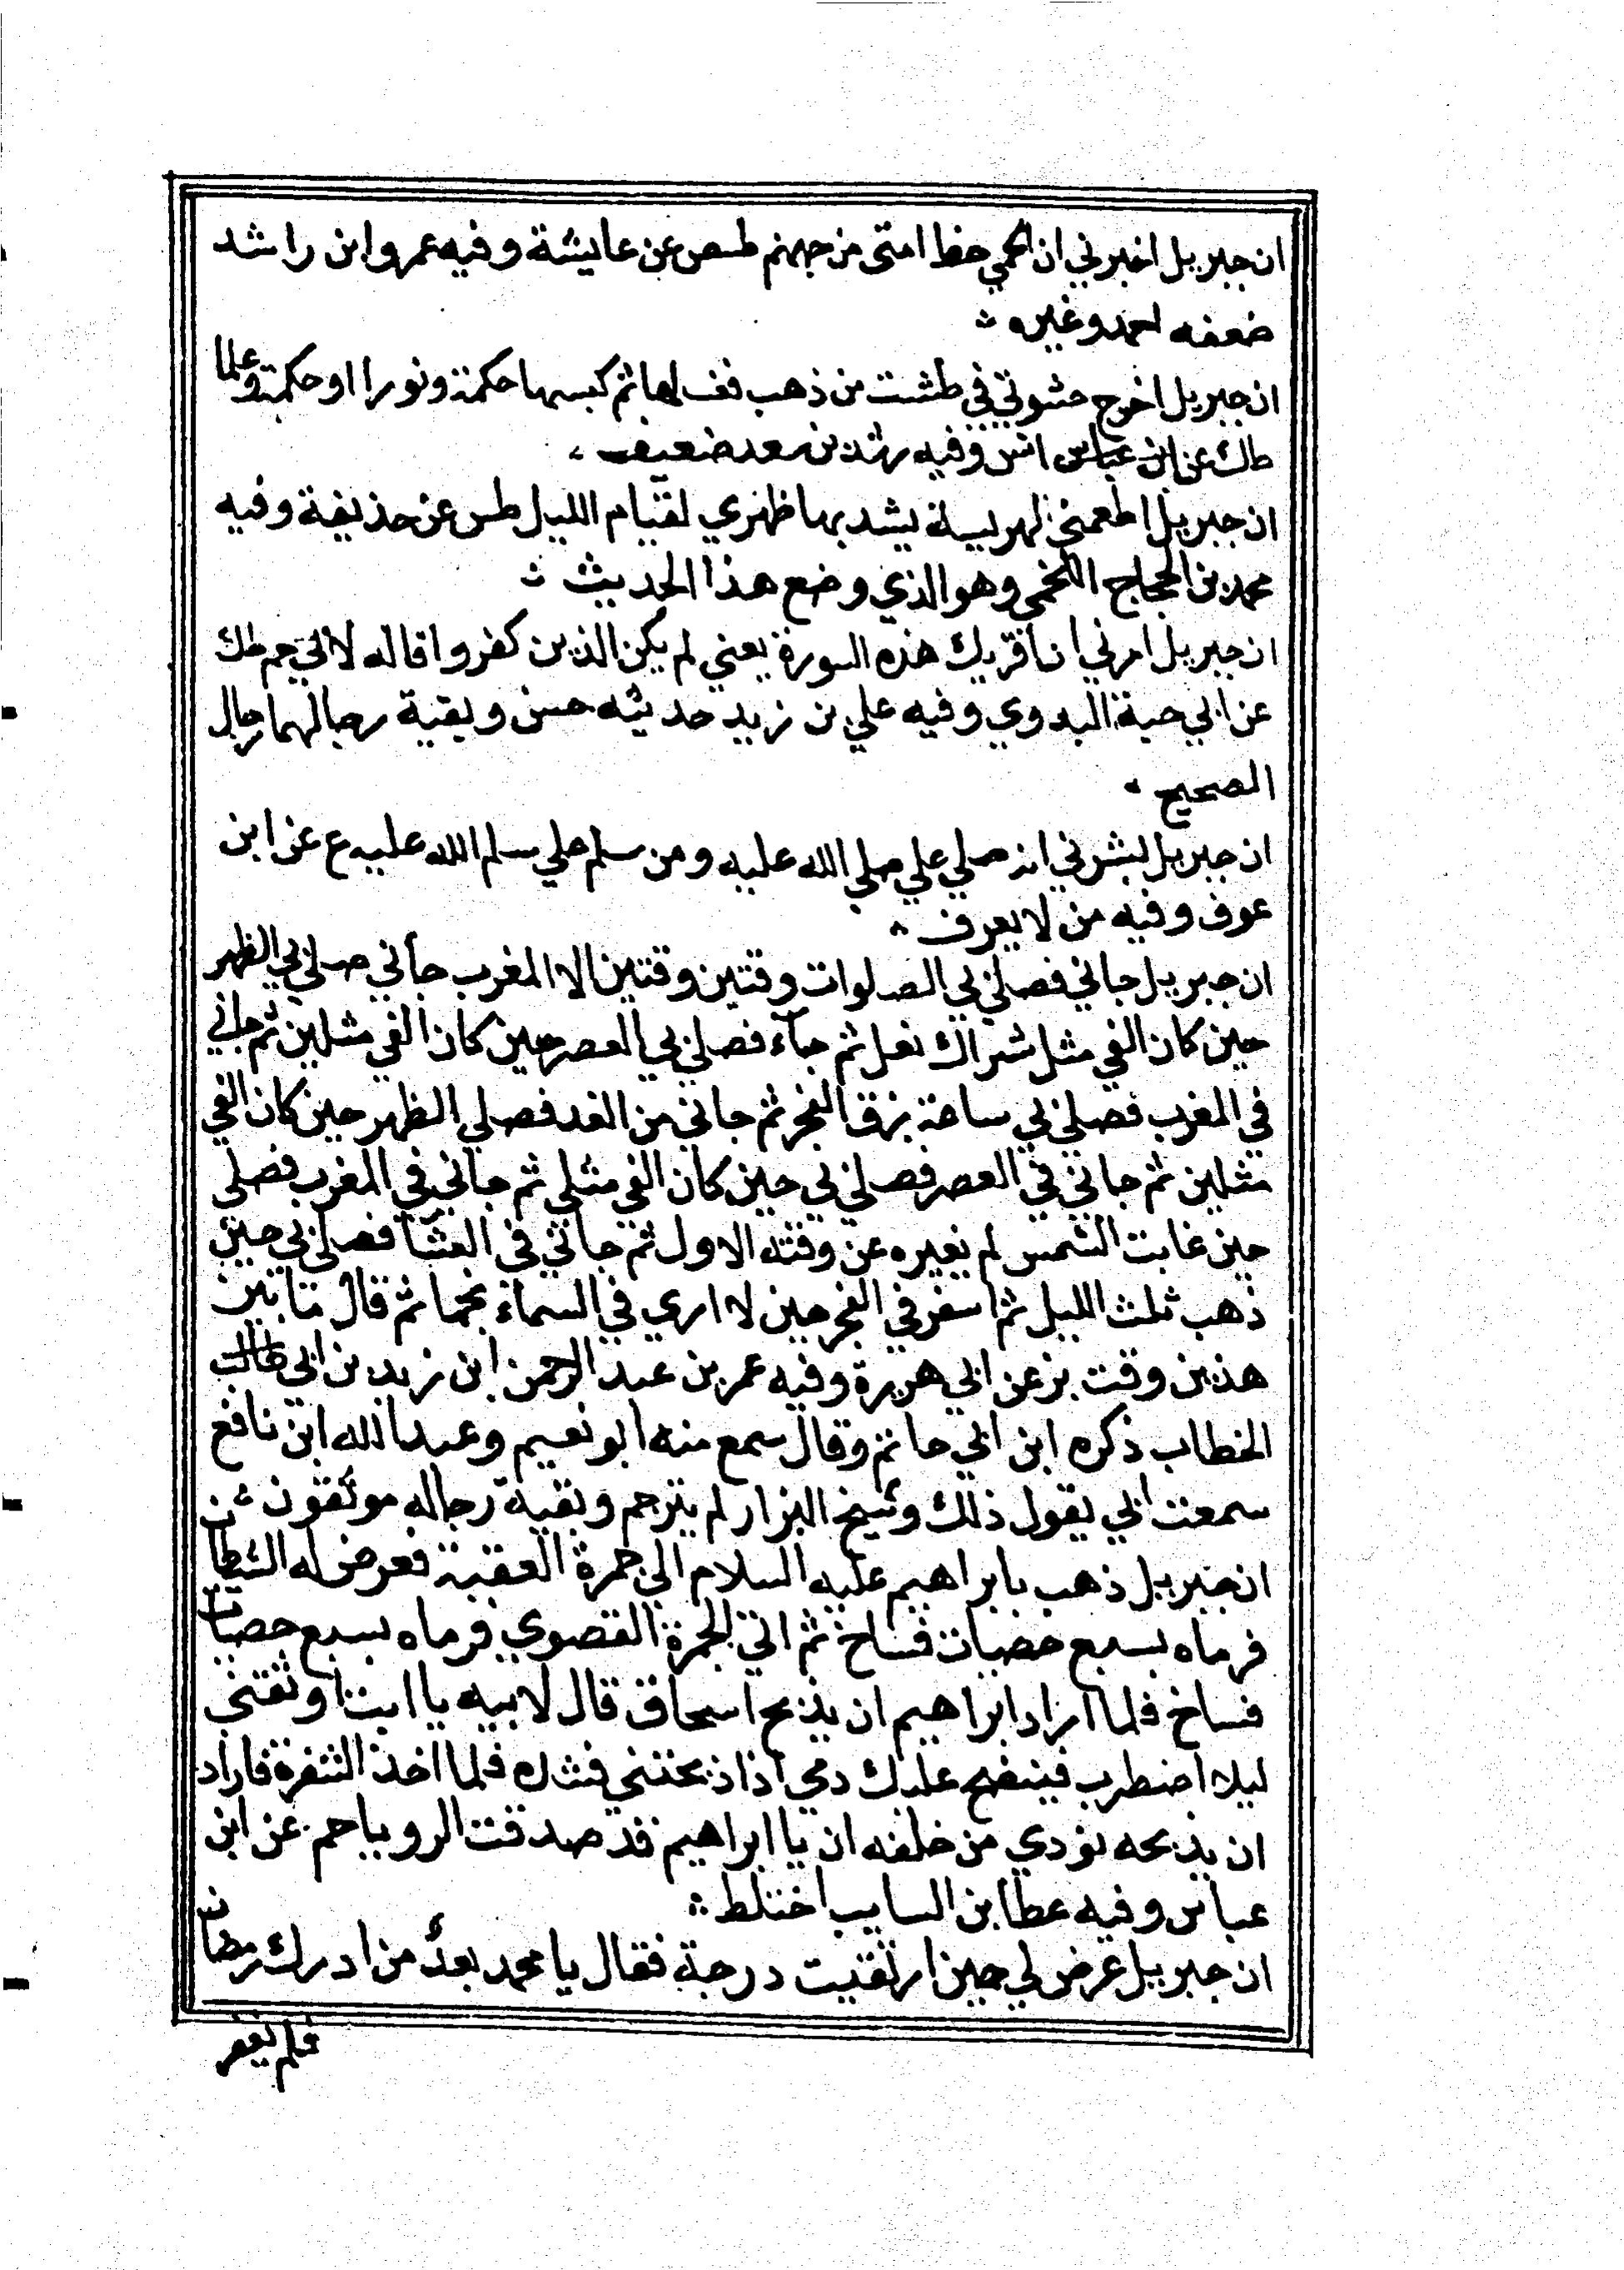 ان جبريل اخبرني ان الحمي حظ امتى من جهنم طس عن عايشة وفيه عمر وابن راشد
ضعفه احمد وغيره
ان جبريل اخرج حشوتي في طشت من ذهب فغسلها ثم كبسها حكمة ونورا او حكمة وعلما
طك عن ابن عباس انس وفيه رشد بن سعد ضعيف
ان جبريل اطعمني الهريسة يشد بها ظهري لقيام الليل طس عن حذيفة وفيه
محمد بن الحجاج اللخمي وهو الذي وضع هذا الحديث
ان جبريل امرني ان اقريك هذه السورة يعني لم يكن الذين كفروا قاله لابي حم طك
عن ابي حبة البدوي وفيه علي بن زيد حديثه حسن وبقية رجالهما رجال
الصحيح
ان جبريل بشرني انه صلي علي صلي الله عليه ومن سلم علي سلم الله عليه ع عن ابن
عوف وفيه من لا يعرف
ان جبريل جاني فصلي بي الصلوات وقتين وقتين الا المغرب جأني صلي بي الظهر
حين كان الفي مثل شراك نعل ثم جآء فصلي بي العصر حين كان الفي مثلين ثم جاني
في المغرب فصلي بي ساعة بزق الفجر ثم جاني من الغد فصلي الظهر حين كان الفي
مثلين ثم جاني في العصر فصلي بي حين كان الفي مثلي ثم جاني في المغرب فصلي
حين غابت الشمس لم يغيره عن وقته الاول ثم جاني في العشا فصلي بي حين
ذهب ثلث الليل ثم اسفر في الفجر حين لا اري في السماء نجما ثم قال ما بين
هذين وقت بز عن ابي هريرة وفيه عمر بن عبد الرحمن ابن زيد بن ابي طالب
الخطاب ذكره ابن ابي حاتم وقال سمع منه ابو نعيم وعبد الله ابن نافع
سمعت ابي يقول ذلك وشيخ البزار لم يترجم وبقية رجاله موثقون
ان جبريل ذهب بابراهيم عليه السلام الي جمرة العقبة فعرض له الشيطان
فرماه بسبع حصيات فساخ ثم اتي الجمرة القصوي فرماه بسبع حصيات
فساخ فلما اراد ابراهيم ان يذبح اسحاق قال لابيه يا ابت اوثقني
ليلا اضطرب فينضح عليك دمي اذا ذبحتني فشده فلما اخذ الشفرة فاراد
ان يذبحه نودي من خلفه ان يا ابراهيم قد صدقت الرويا حم عن ابن
عباس وفيه عطا بن السايب اختلط
ان جبريل عرض لي حين ارتقيت درجة فقال يا محمد بعدُ من ادرك رمضان
فلم يغفر